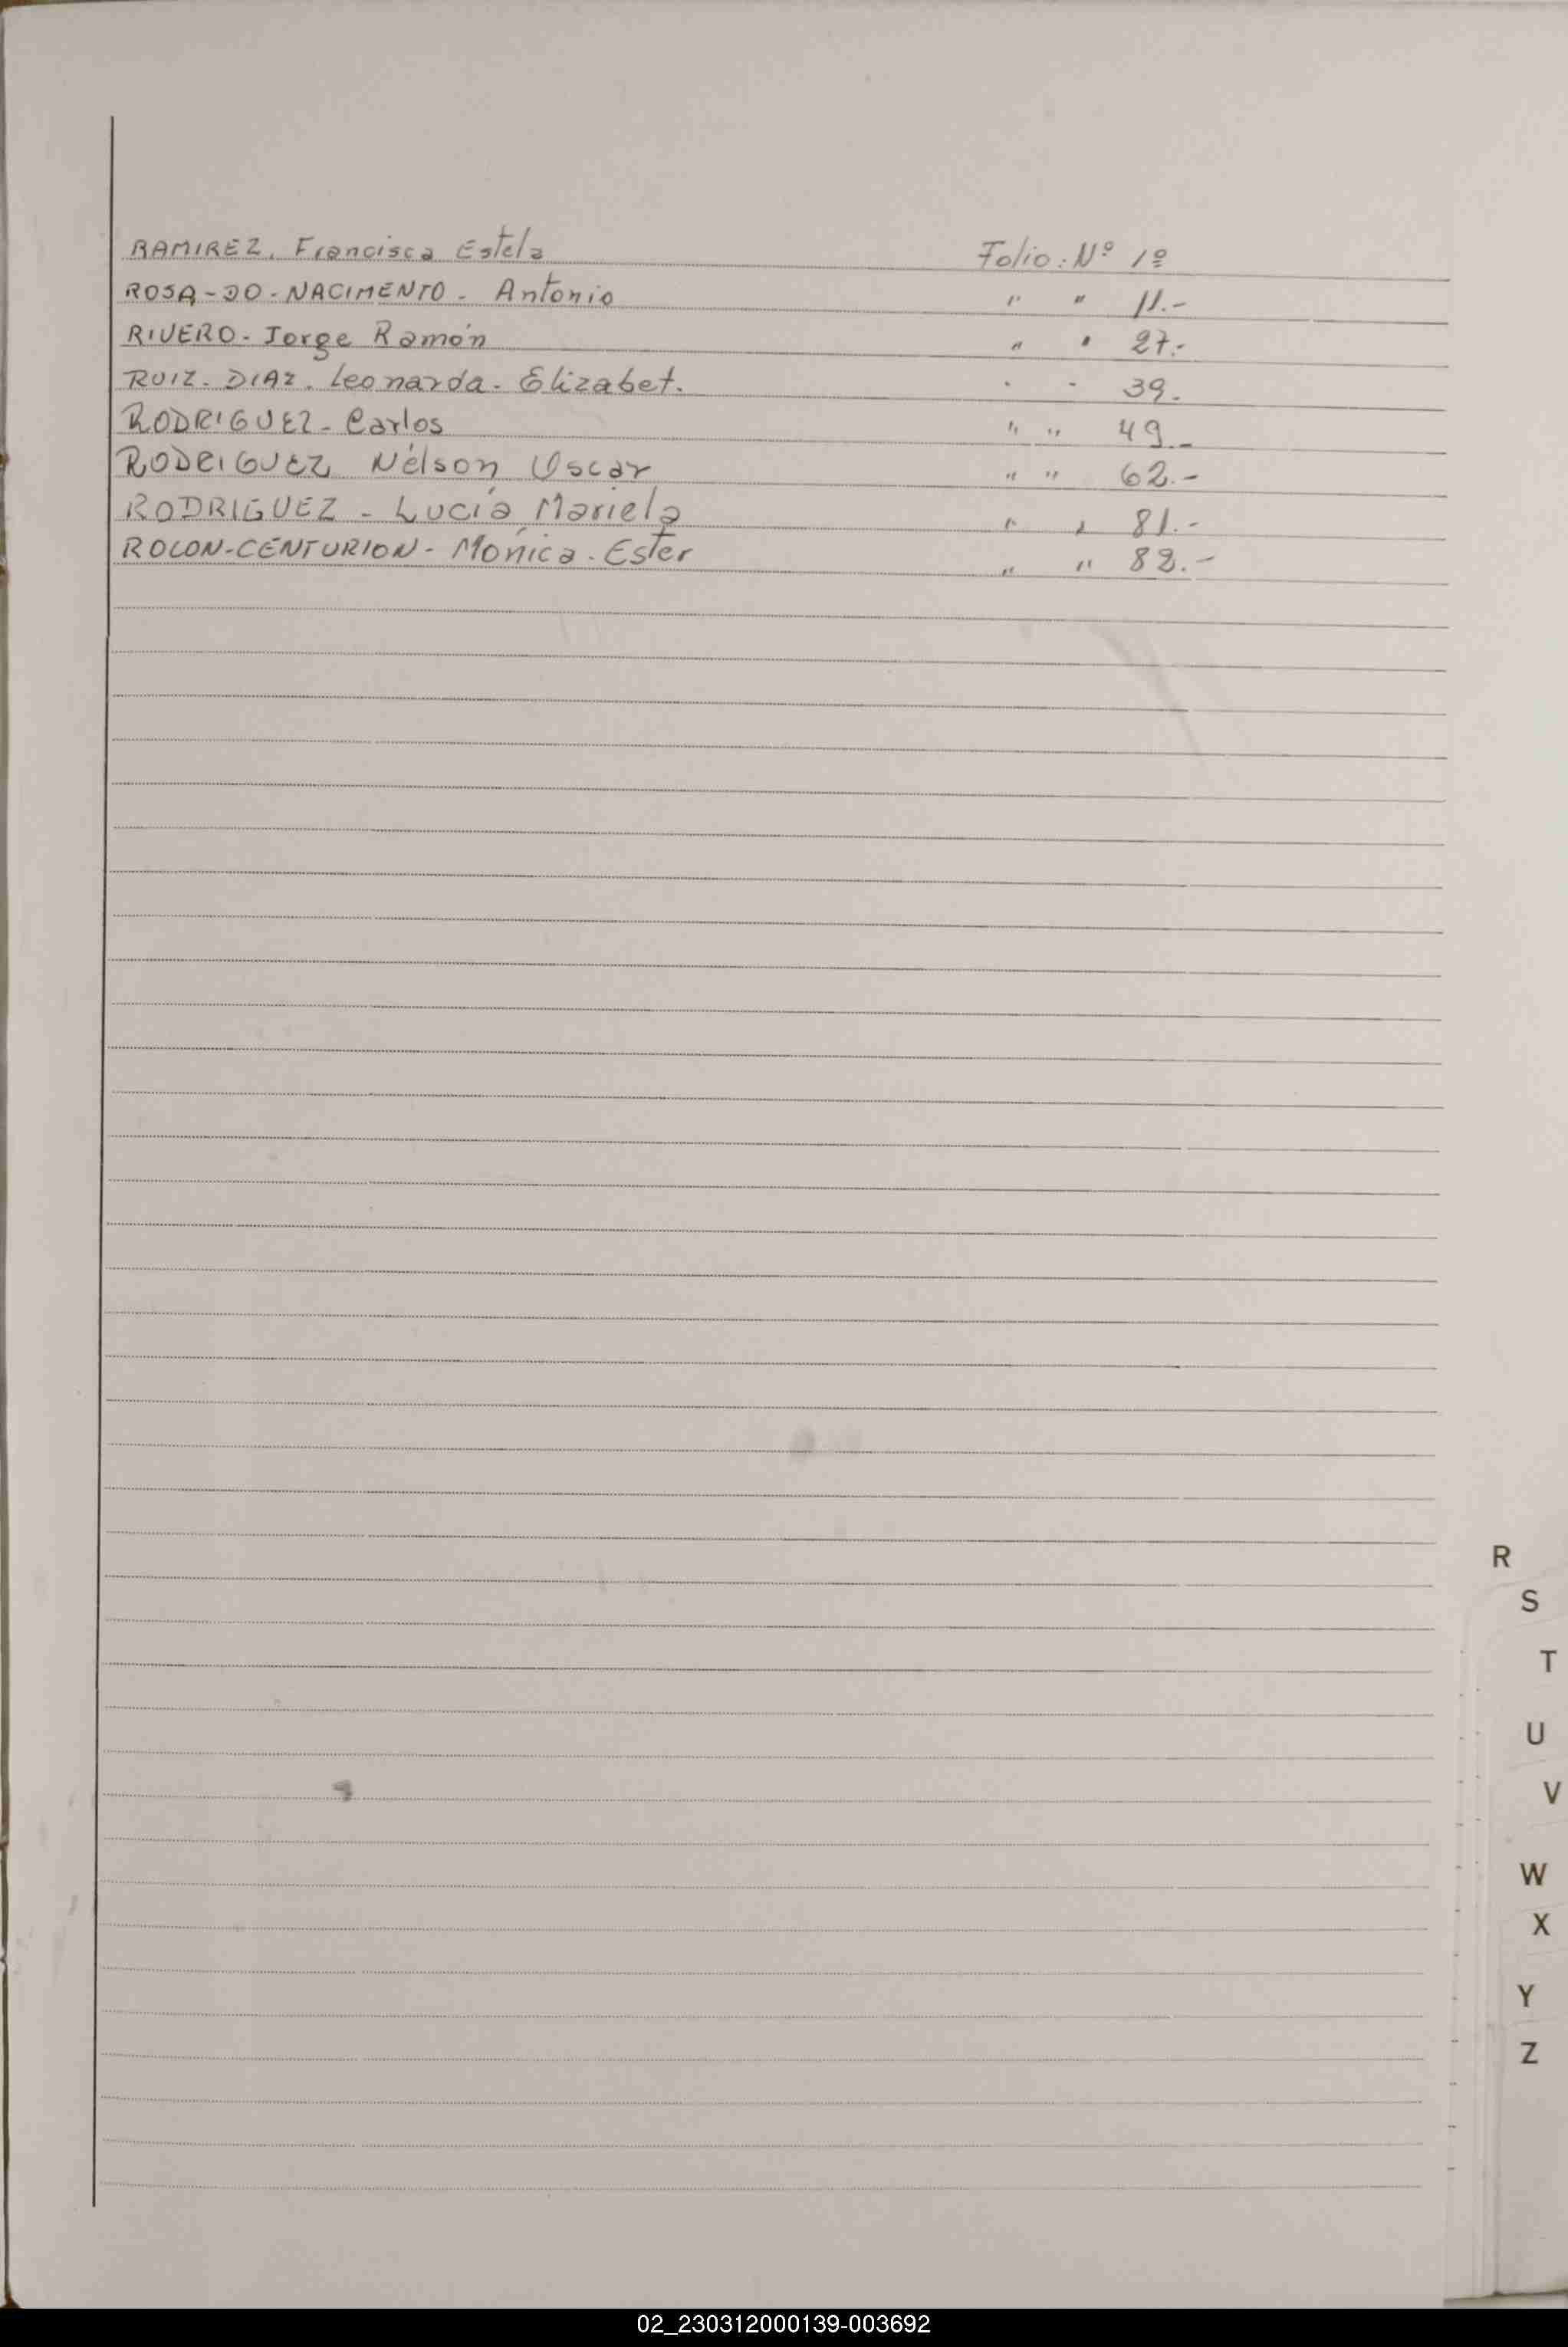 RAMIREZ. Francisca Estela Folio: Nº 1º
ROSA-DO-NACIMENTO - Antonio " " 11.-
RIVERO - Jorge Ramón " " 27.-
RUIZ. DIAZ. Leonarda - Elizabet. " " 39.
RODRIGUEZ - Carlos " " 49.-
RODRIGUEZ Nélson Oscar " " 62.-
RODRIGUEZ - Lucía Mariela " " 81.-
ROLON-CENTURION - Mónica - Ester " " 82.-
R
S
T
U
V
W
X
Y
Z
02_230312000139-003692